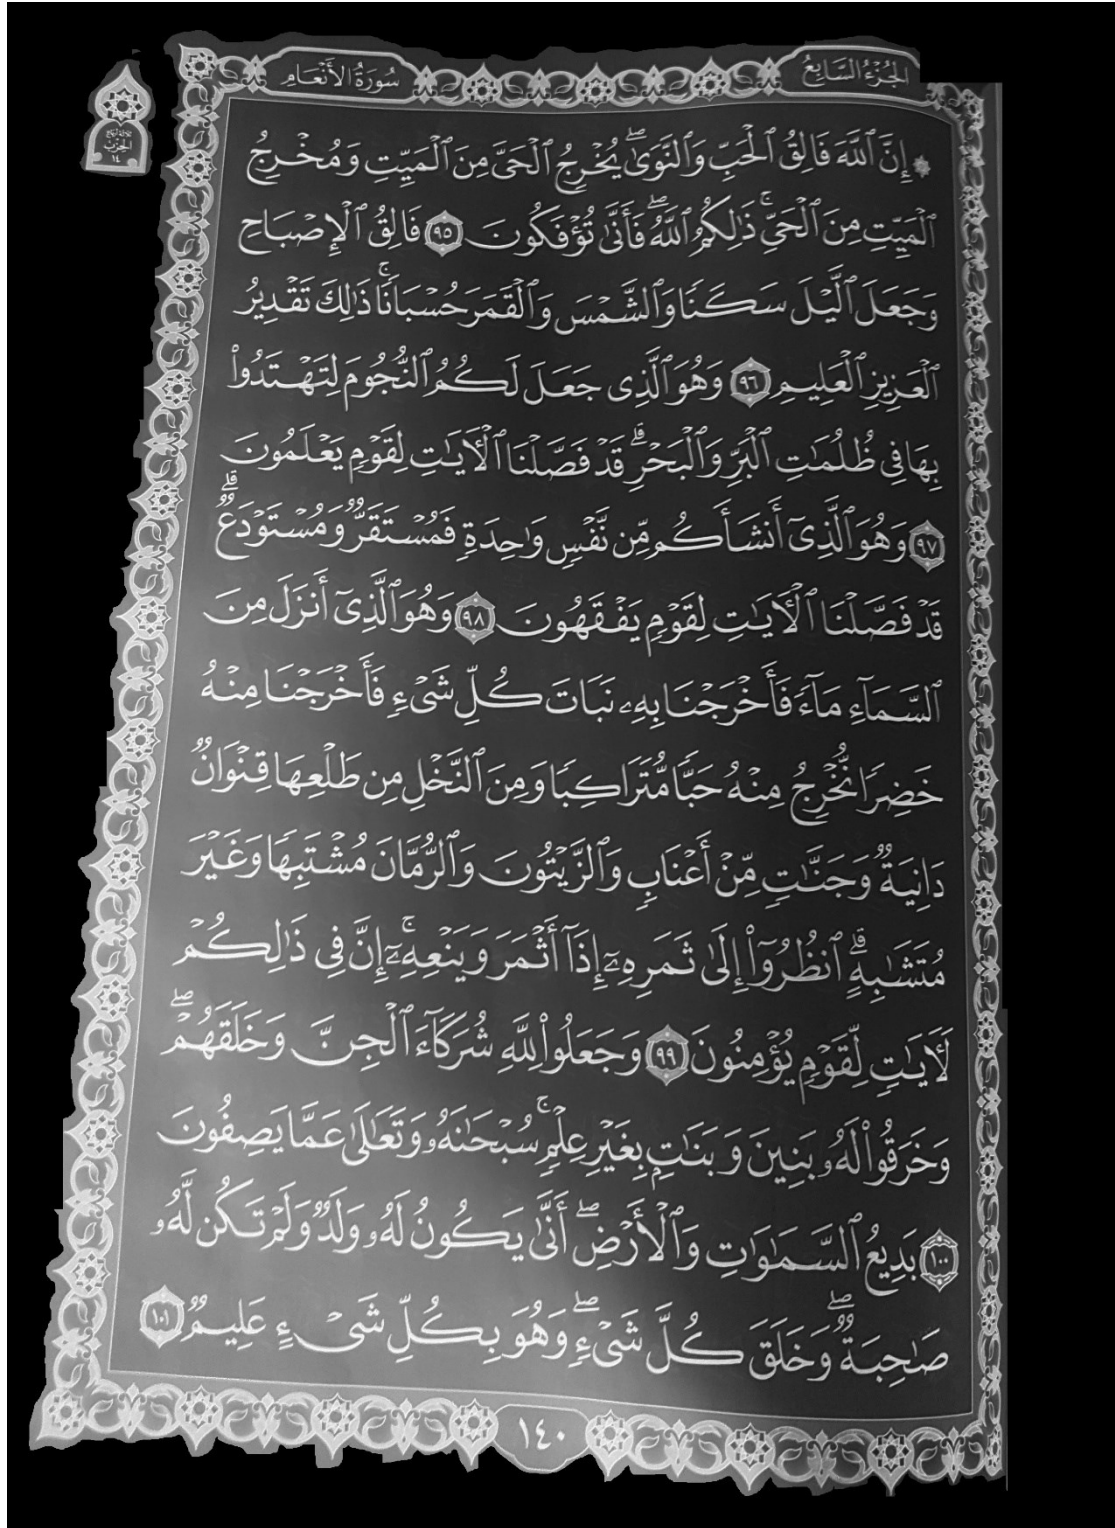 الجُزْءُ السَّابِعُ
سُورَةُ الأَنْعَامِ
ثلاثة أرباع
الحِزْب
١٤
۞ إِنَّ ٱللَّهَ فَالِقُ ٱلْحَبِّ وَٱلنَّوَىٰۖ يُخْرِجُ ٱلْحَىَّ مِنَ ٱلْمَيِّتِ وَمُخْرِجُ
ٱلْمَيِّتِ مِنَ ٱلْحَىِّۚ ذَٰلِكُمُ ٱللَّهُۖ فَأَنَّىٰ تُؤْفَكُونَ ٩٥ فَالِقُ ٱلْإِصْبَاحِ
وَجَعَلَ ٱلَّيْلَ سَكَنًا وَٱلشَّمْسَ وَٱلْقَمَرَ حُسْبَانًاۚ ذَٰلِكَ تَقْدِيرُ
ٱلْعَزِيزِ ٱلْعَلِيمِ ٩٦ وَهُوَ ٱلَّذِى جَعَلَ لَكُمُ ٱلنُّجُومَ لِتَهْتَدُوا۟
بِهَا فِى ظُلُمَٰتِ ٱلْبَرِّ وَٱلْبَحْرِۗ قَدْ فَصَّلْنَا ٱلْـَٔايَٰتِ لِقَوْمٍ يَعْلَمُونَ
٩٧ وَهُوَ ٱلَّذِىٓ أَنشَأَكُم مِّن نَّفْسٍ وَٰحِدَةٍ فَمُسْتَقَرٌّ وَمُسْتَوْدَعٌۗ
قَدْ فَصَّلْنَا ٱلْـَٔايَٰتِ لِقَوْمٍ يَفْقَهُونَ ٩٨ وَهُوَ ٱلَّذِىٓ أَنزَلَ مِنَ
ٱلسَّمَآءِ مَآءً فَأَخْرَجْنَا بِهِۦ نَبَاتَ كُلِّ شَىْءٍ فَأَخْرَجْنَا مِنْهُ
خَضِرًا نُّخْرِجُ مِنْهُ حَبًّا مُّتَرَاكِبًا وَمِنَ ٱلنَّخْلِ مِن طَلْعِهَا قِنْوَانٌ
دَانِيَةٌ وَجَنَّٰتٍ مِّنْ أَعْنَابٍ وَٱلزَّيْتُونَ وَٱلرُّمَّانَ مُشْتَبِهًا وَغَيْرَ
مُتَشَٰبِهٍۗ ٱنظُرُوٓا۟ إِلَىٰ ثَمَرِهِۦٓ إِذَآ أَثْمَرَ وَيَنْعِهِۦٓۚ إِنَّ فِى ذَٰلِكُمْ
لَـَٔايَٰتٍ لِّقَوْمٍ يُؤْمِنُونَ ٩٩ وَجَعَلُوا۟ لِلَّهِ شُرَكَآءَ ٱلْجِنَّ وَخَلَقَهُمْۖ
وَخَرَقُوا۟ لَهُۥ بَنِينَ وَبَنَٰتٍۭ بِغَيْرِ عِلْمٍۚ سُبْحَٰنَهُۥ وَتَعَٰلَىٰ عَمَّا يَصِفُونَ
١٠٠ بَدِيعُ ٱلسَّمَٰوَٰتِ وَٱلْأَرْضِۖ أَنَّىٰ يَكُونُ لَهُۥ وَلَدٌ وَلَمْ تَكُن لَّهُۥ
صَٰحِبَةٌۖ وَخَلَقَ كُلَّ شَىْءٍۖ وَهُوَ بِكُلِّ شَىْءٍ عَلِيمٌ ١٠١
١٤٠